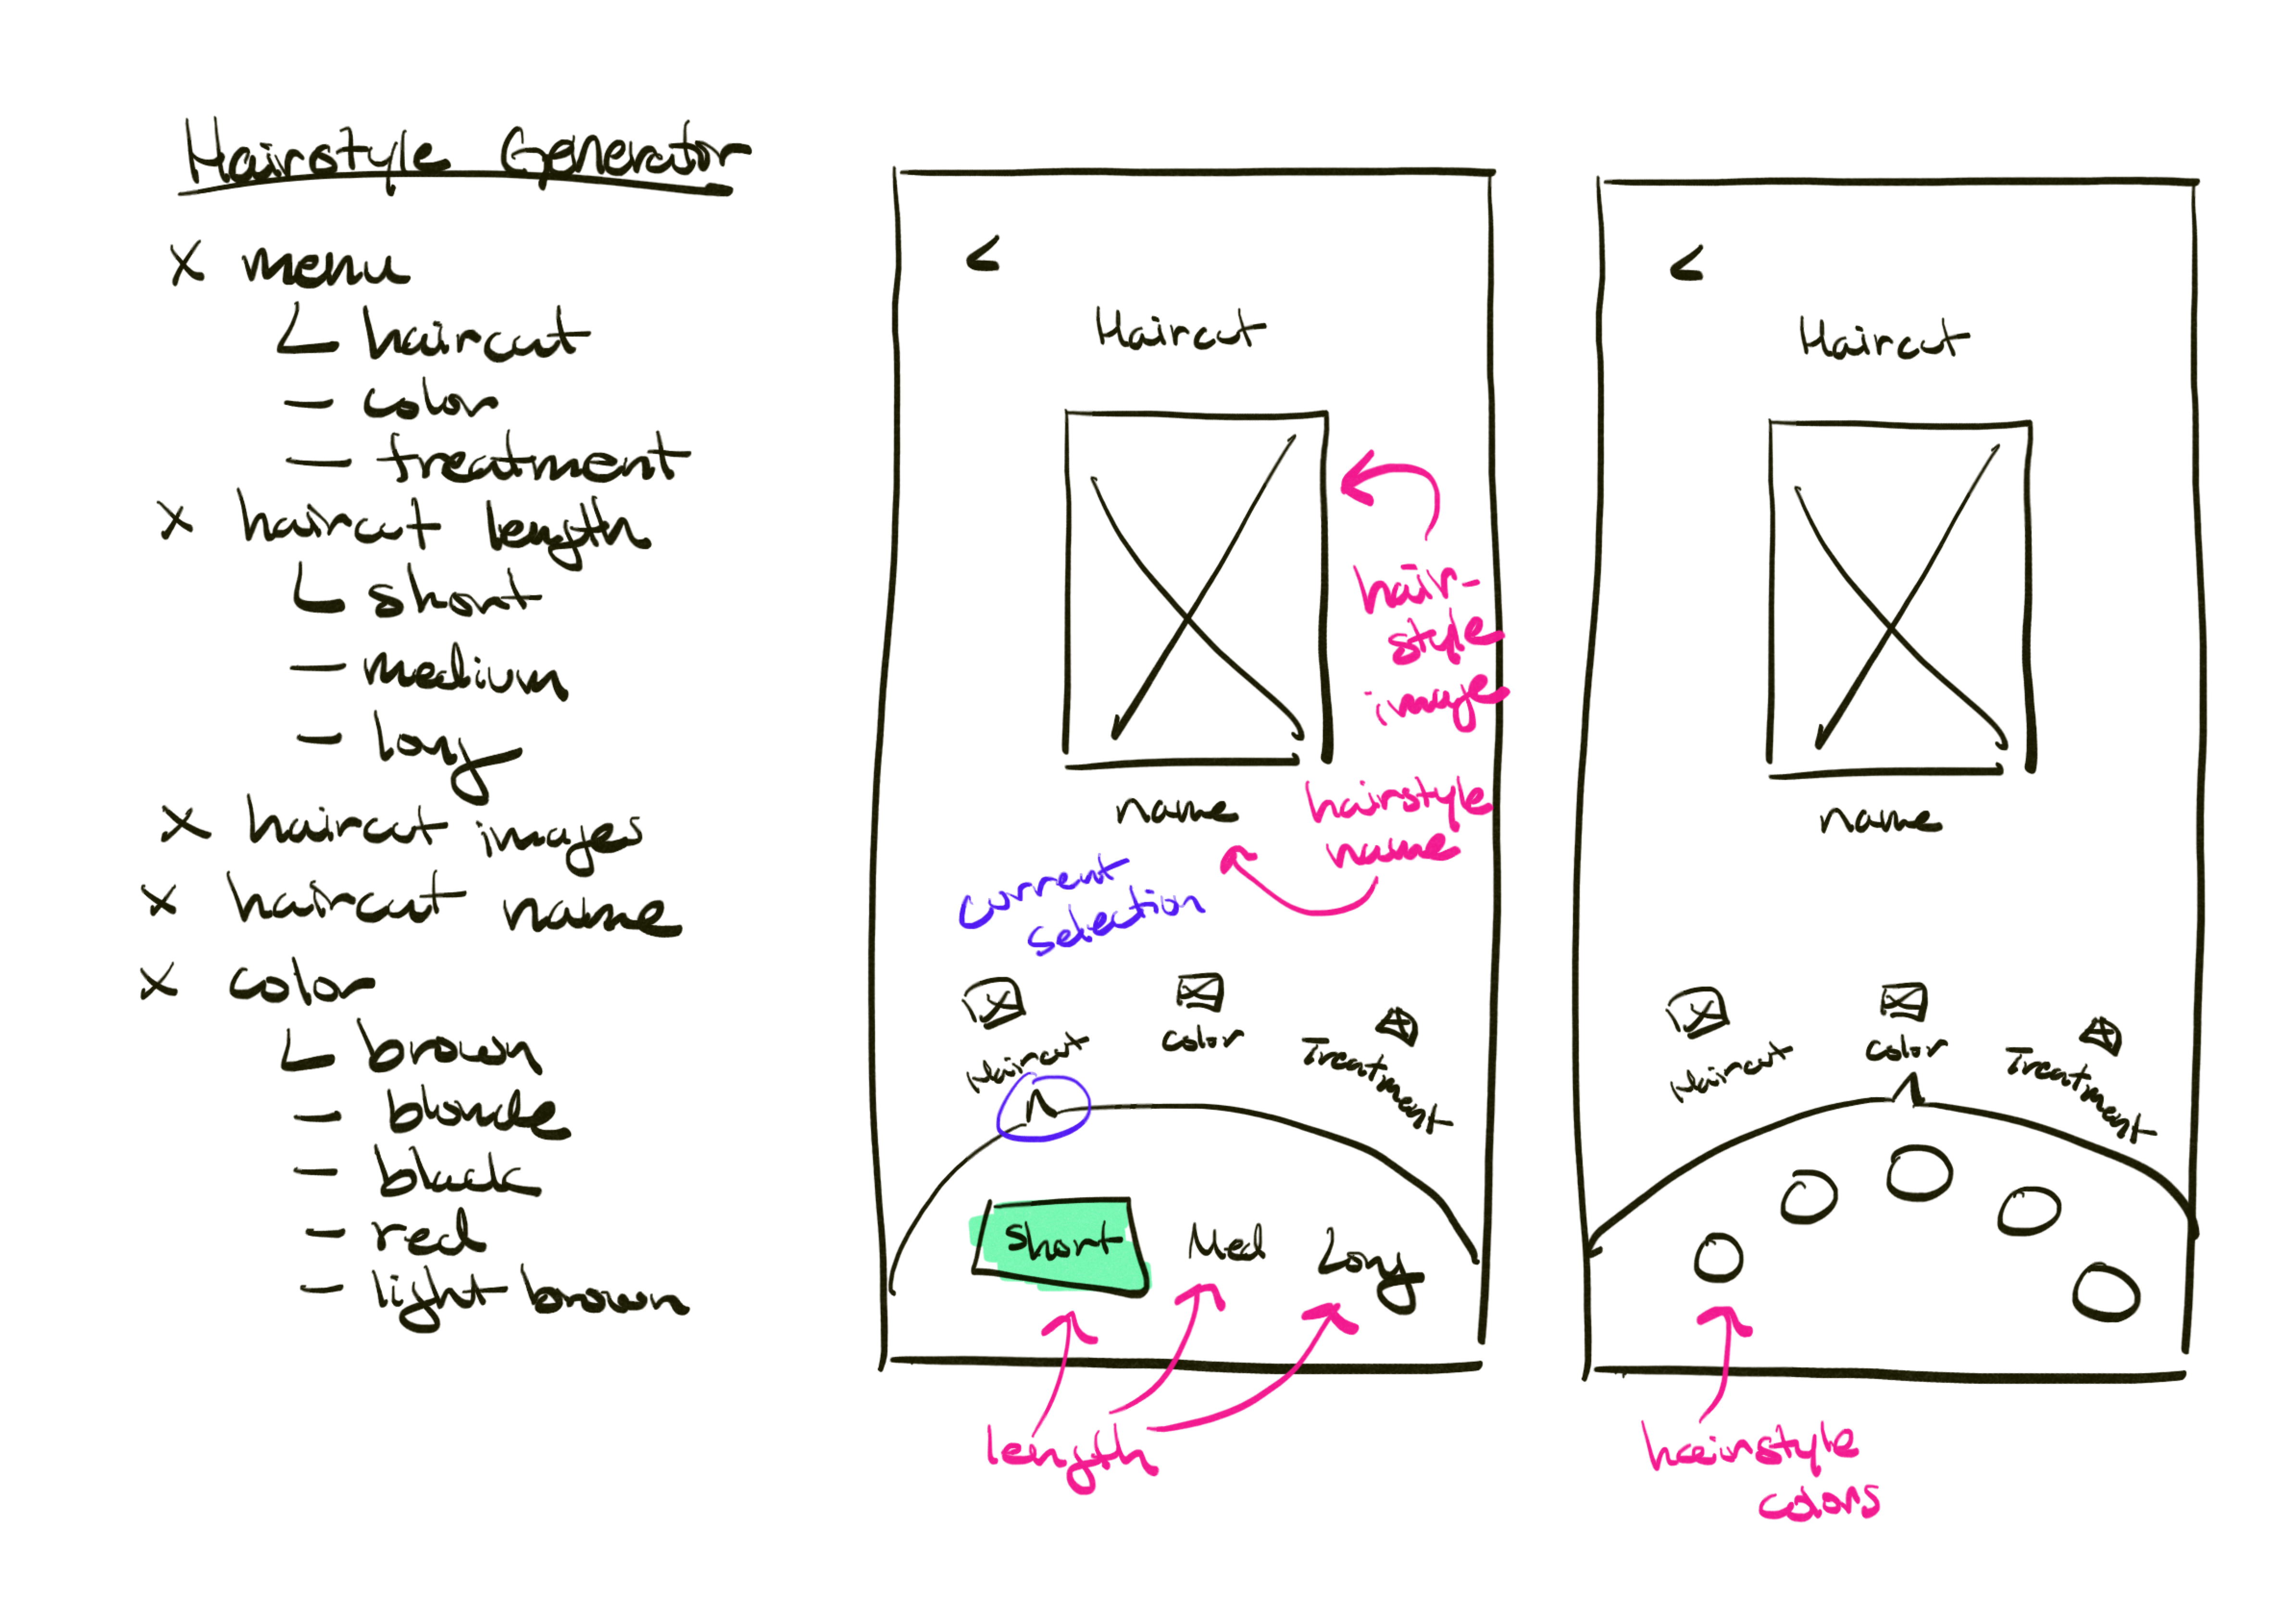 Hairstyle Generator
x menu
haircut
- color
- treatment
x haircut length
short
- medium
- long
x haircut images
x haircut name
x color
brown
- blonde
- black
- red
- light brown
<
Haircut
hair-
style
image
name
hairstyle
name
current
selection
Haircut
color
Treatment
short
Med
Long
length
<
Haircut
name
Haircut
color
Treatment
hairstyle
colors